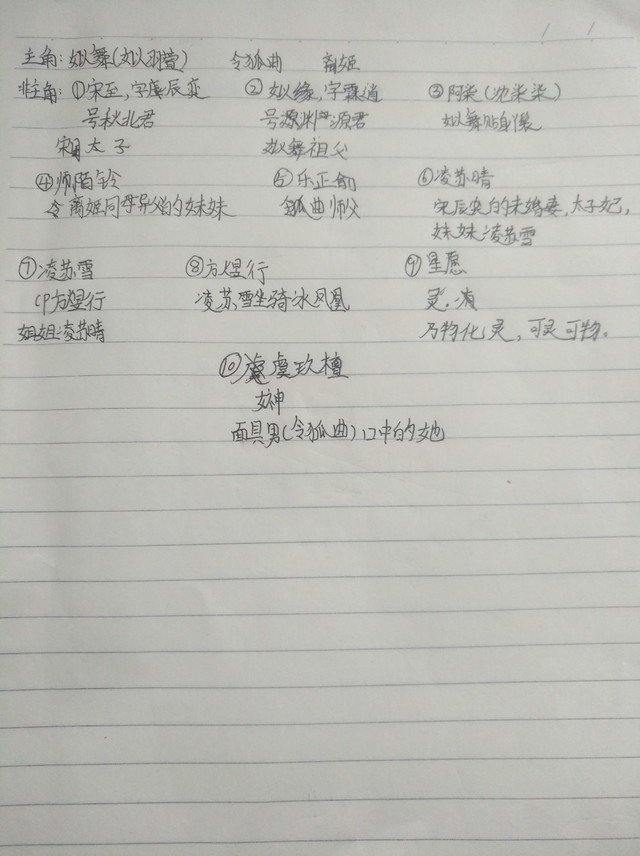 主角：姒舞(姒羽萱) 令狐曲 离姬
非主角：①宋至，字庚辰奕 ②姒缘，字霖逍 ③阿柒(沈柒柒)
号秋北君 号源渊 源君 姒舞贴身侍婢
宋国太子 姒舞祖父
④师陌铃 ⑤乐正 ⑥凌苏晴
令离姬同母异父的妹妹 令狐曲师父 宋辰奕的未婚妻，太子妃，
妹妹凌苏雪
⑦凌苏雪 ⑧方煜行 ⑨星愿
cp方煜行 凌苏雪坐骑冰凤凰 灵.
姐姐凌苏晴 乃物化灵，可灵可物。
⑩虞玖檀
女神
面具男(令狐曲)口中的她